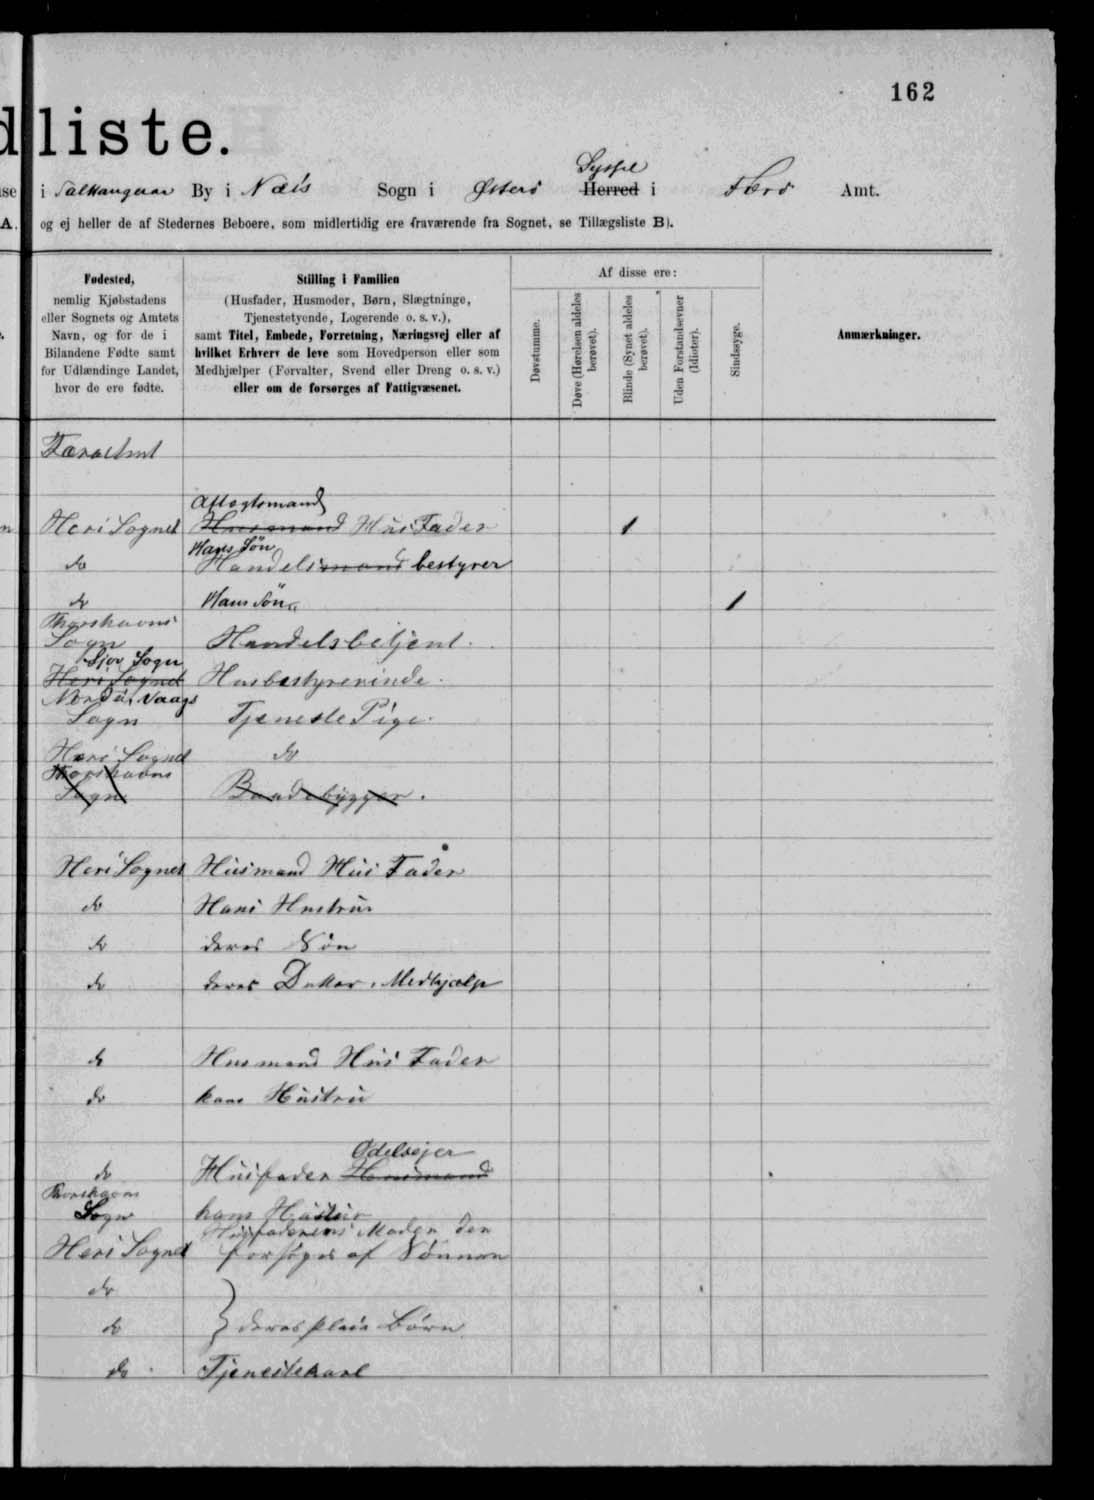 162
dliste.
Syssel
se i Salthangerar By i Næs Sogn i Østerø Herred i Færø Amt.
A. og ej heller de af Stedernes Beboere, som midlertidig ere fraværende fra Sognet, se Tillægsliste B).
Fødested,
nemlig Kjøbstadens
eller Sognets og Amtets
Navn, og for de i
Bilandene Fødte samt
for Udlændinge Landet,
hvor de ere fødte.
Stilling i Familien
(Husfader, Husmoder, Børn, Slægtninge,
Tjenestetyende, Logerende o. s. v.),
samt Titel, Embede, Forretning, Næringsvej eller af
hvilket Erhverv de leve som Hovedperson eller som
Medhjælper (Forvalter, Svend eller Dreng o. s. v.)
eller om de forsørges af Fattigvæsenet.
Af disse ere:
Døvstumme.
Døve (Hørelsen aldeles
berøvet).
Blinde (Synet aldeles
berøvet).
Uden Forstandsevner
(Idioter).
Sindssyge.
Anmærkninger.
Færøe Amt
Aftægtsmand
Heri Sognet Husmand Hus Fader 1
Hans Søn
do Handelsmand bestyrer
do Hans Søn 1
Thorshavns
Sogn Handelsbetjent.
Sjov Sogn
Heri Sognet Husbestyrerinde.
Norder Vaags
Sogn Tjeneste Pige.
Heri Sognet do
Thorshavns
Sogn Baadebygger.
Heri Sognet Husmand Hus Fader
do Hans Hustru
do deres Søn
do deres Datter, Medhjælp
do Husmand Hus Fader
do hans Hustru
Odelsejer
do Husfader Husmand
Thorshavns
Sogn hans Hustru
Husfaderens Moder den
Heri Sognet forsøges af Sønnen
do
do } deres pleie Børn
do Tjenestekarl